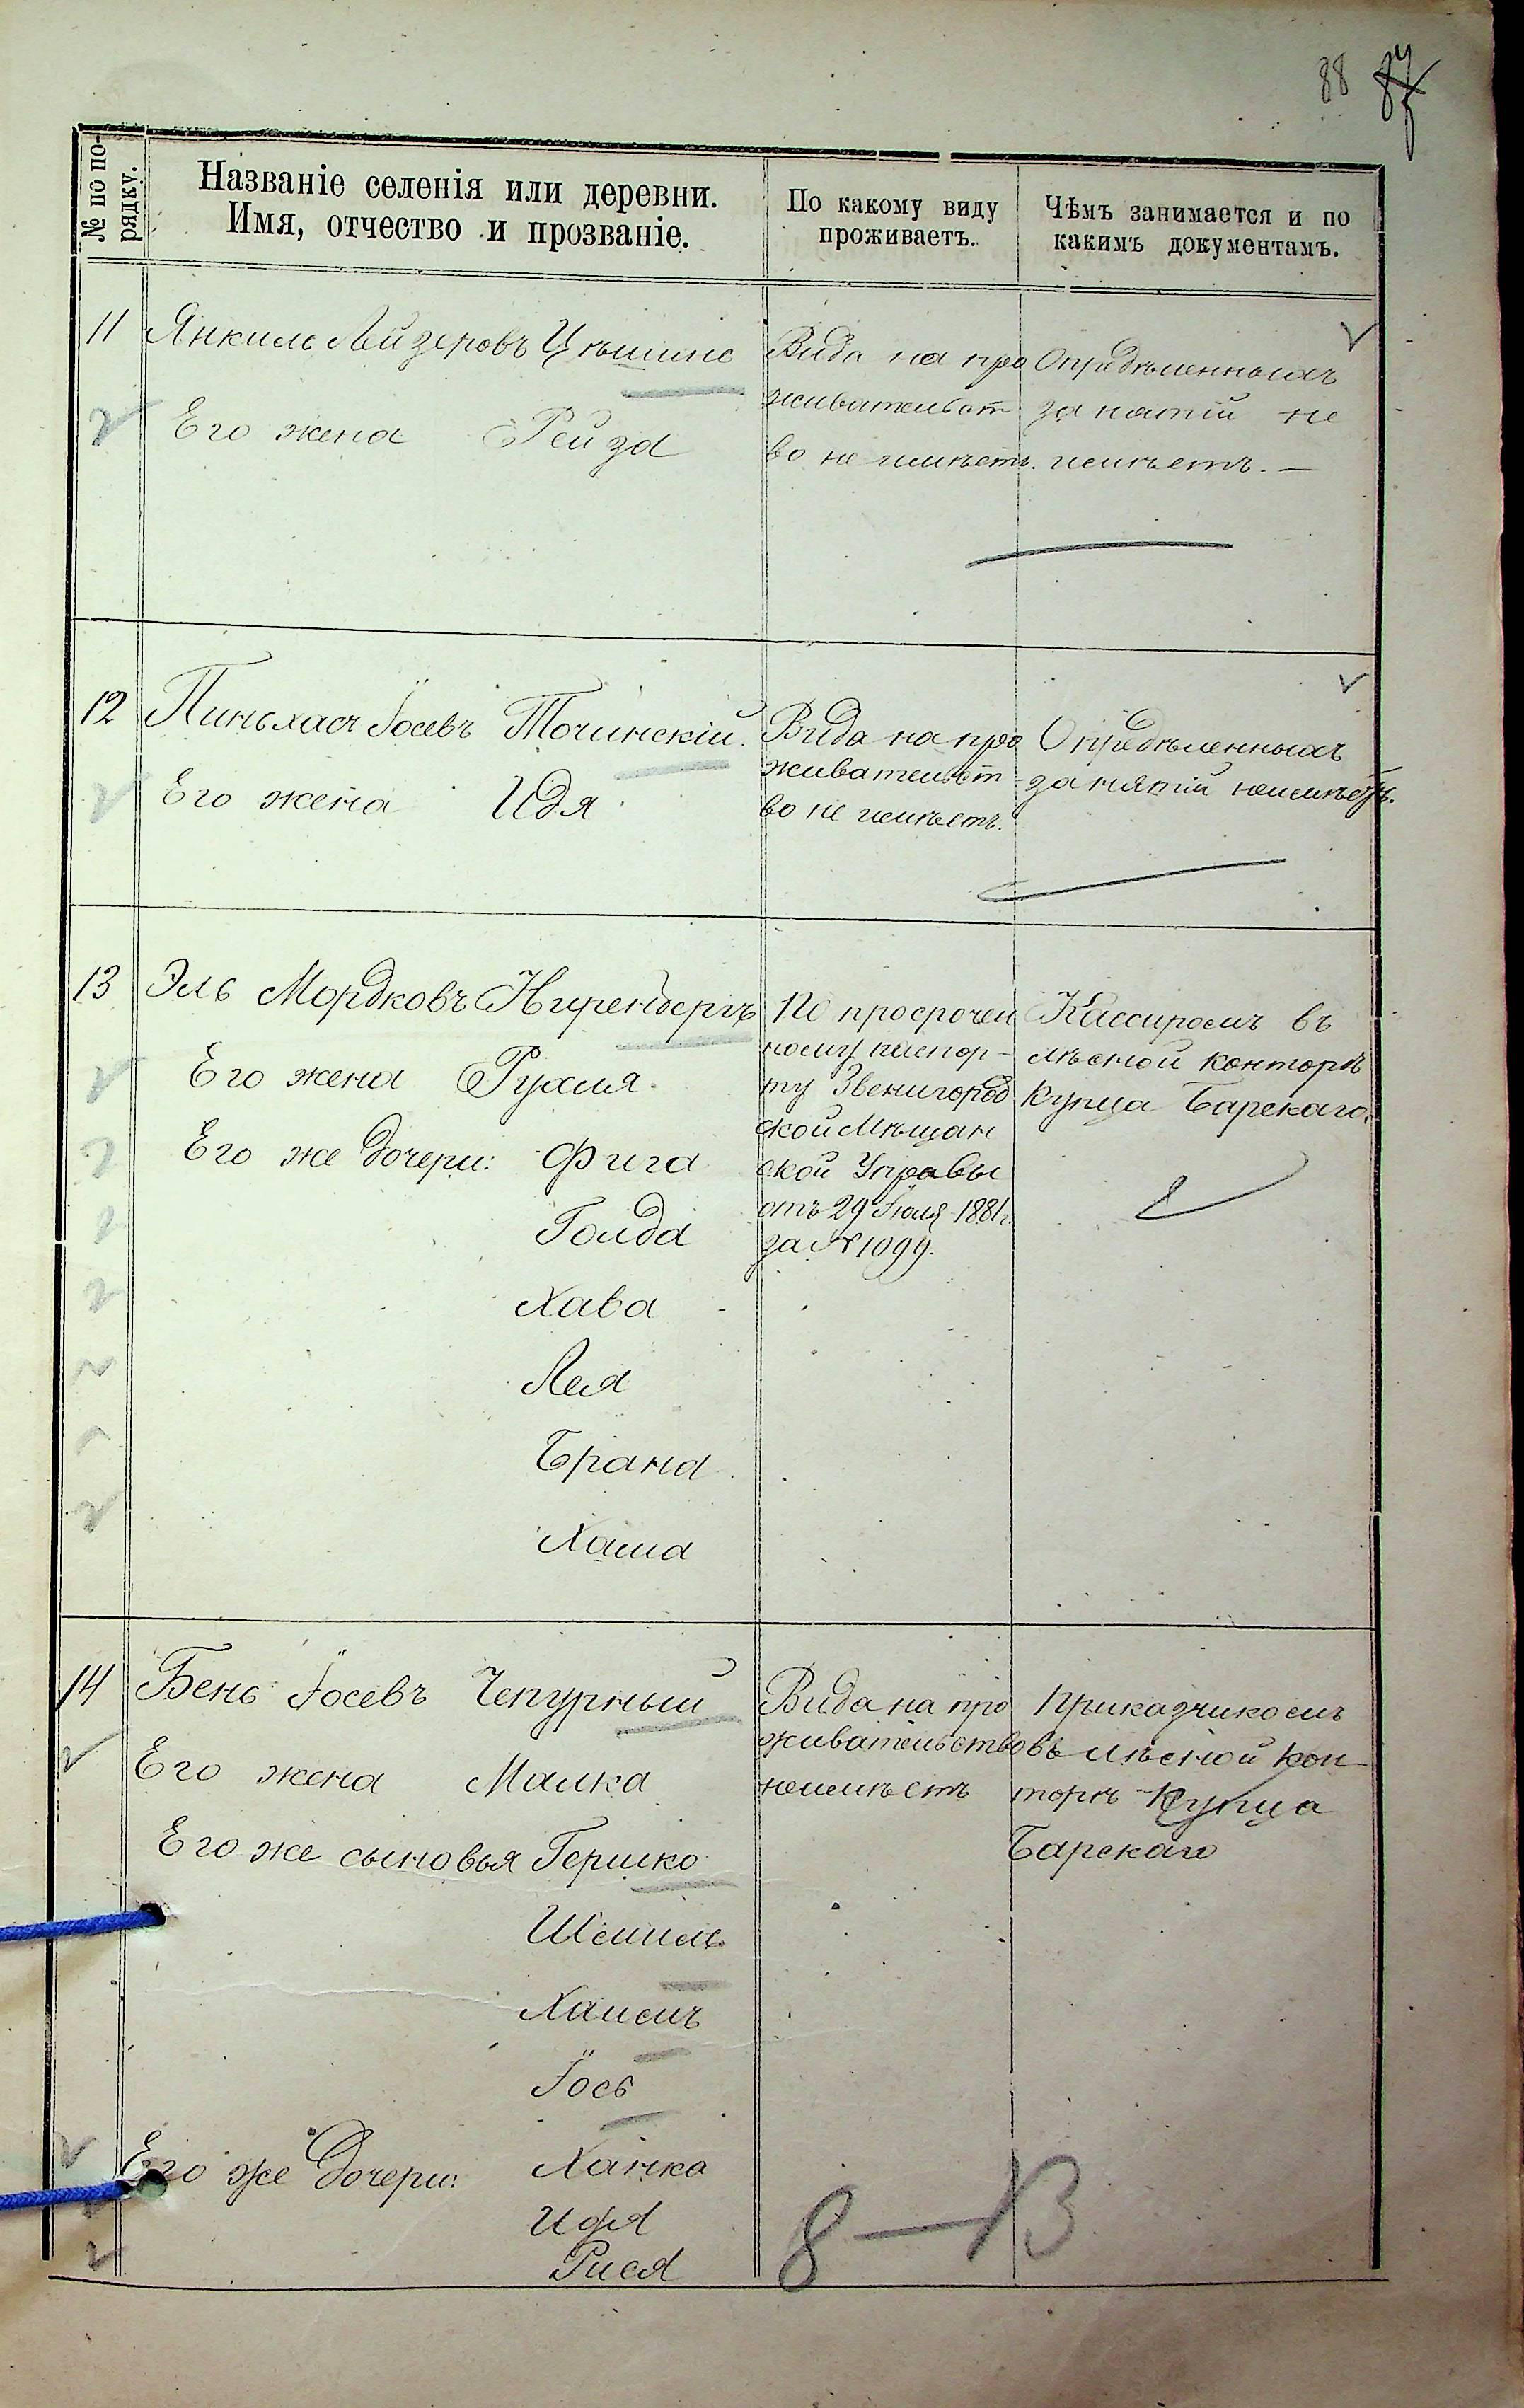 88 87
№ по по-
рядку.
Названіе селенія или деревни.
Имя, отчество и прозваніе.
По какому виду
проживаетъ.
Чѣмъ занимается и по
какимъ документамъ.
11 Янкель Лейзеровъ
Его жена Рейза
Вида на про
живательст
во не имѣетъ.
Опредѣленныхъ
занятій не
имѣетъ. —
12 Пиньхасъ Іосевъ Точинскій.
Его жена Идя
Вида на про
живательст
во не имѣетъ.
Опредѣленныхъ
занятій неимѣетъ.
13 Эль Мордковъ Ниренбергъ
Его жена Рухля.
Его же дочери: Фига
Голда
Хава
Лея
Брана
Хама
По просрочен
ному паспор-
ту Звенигород
ской Мѣщан
ской Управы
отъ 29 Іюля 1881 г.
за № 1099.
Кассиромъ въ
лѣсной конторѣ
Купца Барскаго.
14 Бень Іосевъ Чепурный
Его жена Малка
Его же сыновья Гершко
Шмиль
Хаимъ
Іось
Его же дочери: Ханка
Идя
Рися
Вида на про
живательство
неимѣетъ
Приказчикомъ
въ лѣсной кон-
торѣ Купца
Барскаго
8 — 13